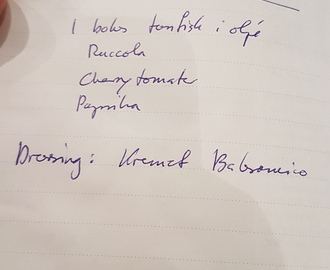 1 boks tunfisk i olje
Ruccola
Cherrytomater
Paprika
Dressing: Kremet Balsamico